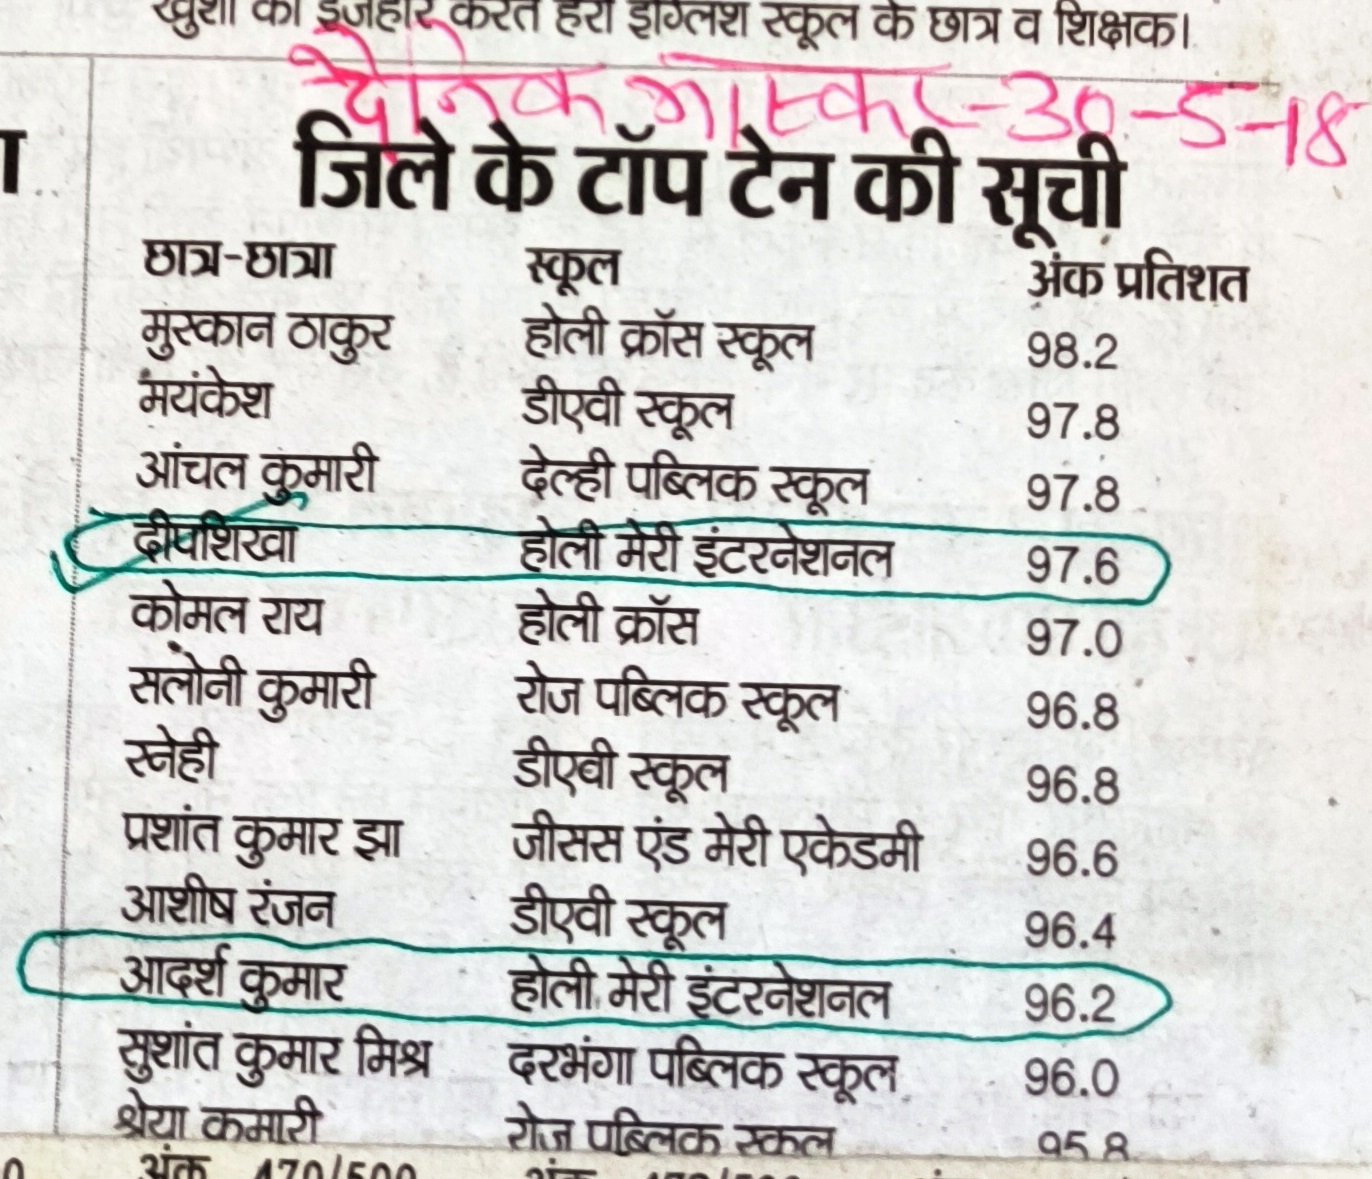 खुशी का इजहार करते हेरो इंग्लिश स्कूल के छात्र व शिक्षक।
दैनिक भास्कर-30-5-18
जिले के टॉप टेन की सूची
छात्र-छात्रा स्कूल अंक प्रतिशत
मुस्कान ठाकुर होली क्रॉस स्कूल 98.2
मयंकेश डीएवी स्कूल 97.8
आंचल कुमारी देल्ही पब्लिक स्कूल 97.8
दीपशिखा होली मेरी इंटरनेशनल 97.6
कोमल राय होली क्रॉस 97.0
सलोनी कुमारी रोज पब्लिक स्कूल 96.8
स्नेही डीएवी स्कूल 96.8
प्रशांत कुमार झा जीसस एंड मेरी एकेडमी 96.6
आशीष रंजन डीएवी स्कूल 96.4
आदर्श कुमार होली मेरी इंटरनेशनल 96.2
सुशांत कुमार मिश्र दरभंगा पब्लिक स्कूल 96.0
श्रेया कुमारी रोज पब्लिक स्कूल 95.8
अंक 470/500 अंक